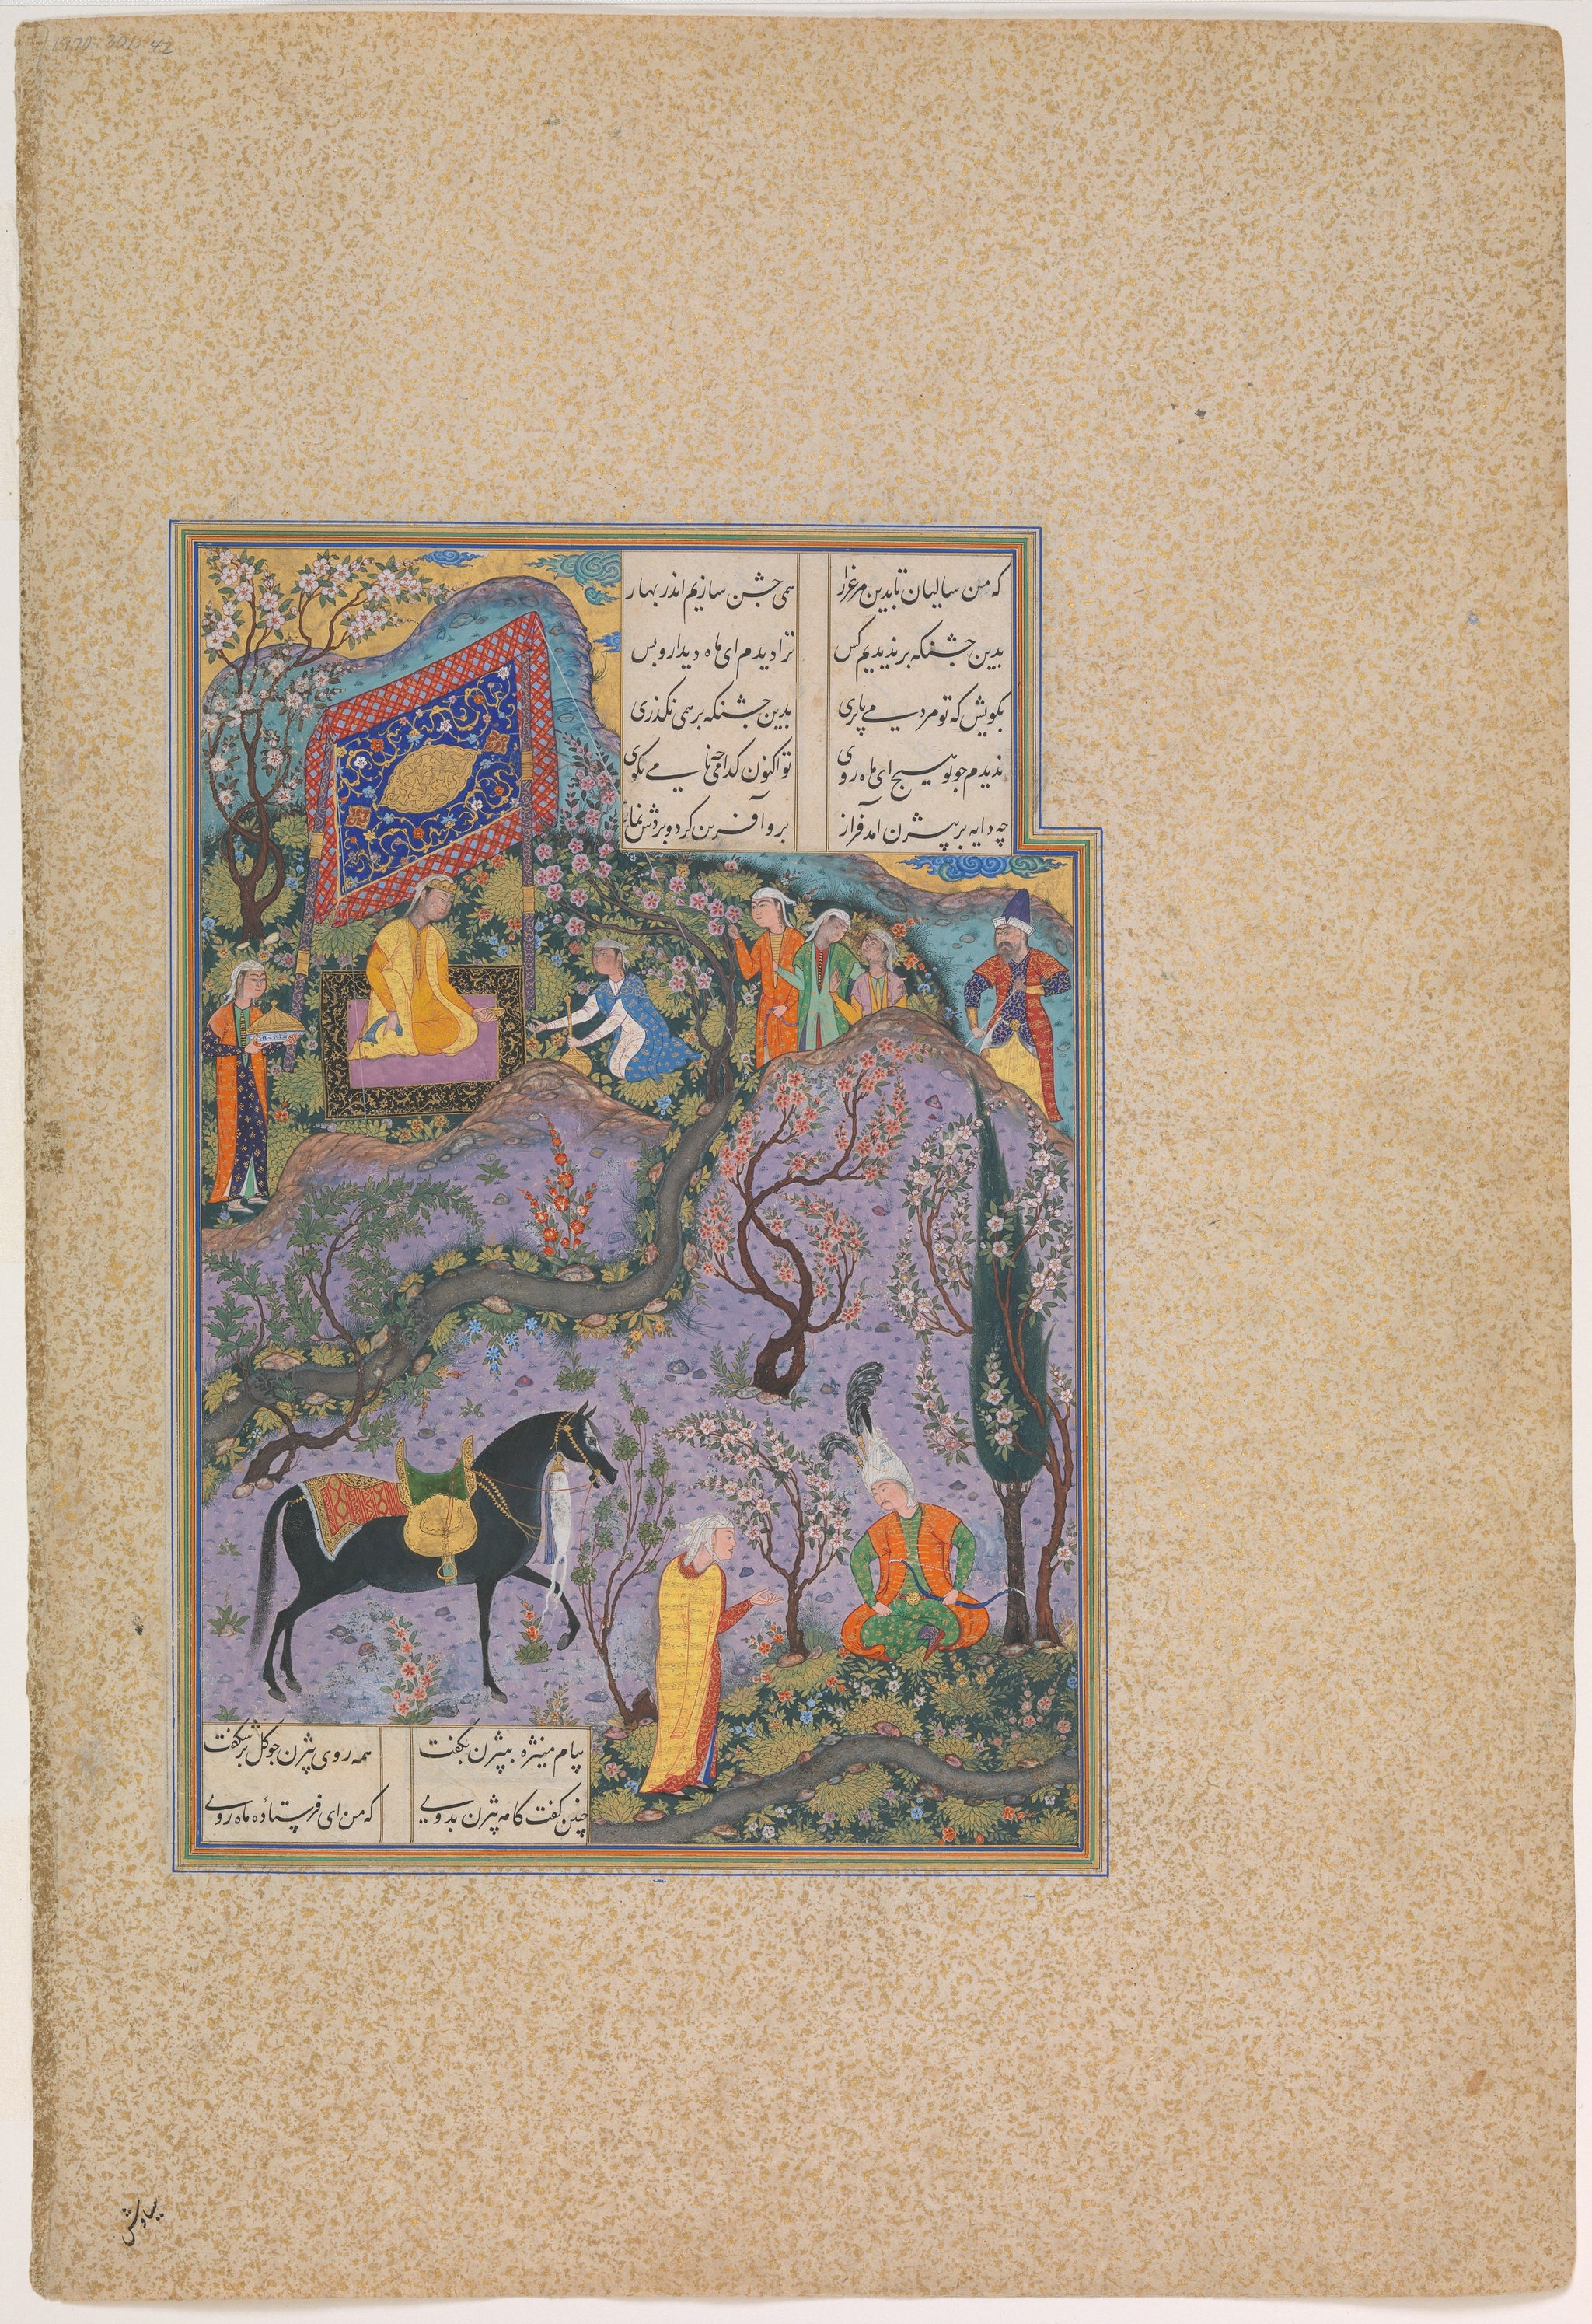 1970.301.42
که من سالیان تا بدین مرغزار همی جشن سازیم اندر بهار
بدین جشنکه بر ندیدیم کس ترا دیدم ای ماه دیدار و بس
بگویش که تو مردمی یا پری بدین جشنکه بر همی بگذری
ندیدم چو تو هیچ ای ماه روی تو اکنون کدامی چه نامی بگوی
چو دایه بر بیژن آمد فراز برو آفرین کرد و بردش نماز
پیام منیژه به بیژن بگفت همه روی بیژن چو گل بر شکفت
چنین گفت کامه بیژن بدوی که من ای فرستاده ماه روی
سیاوش